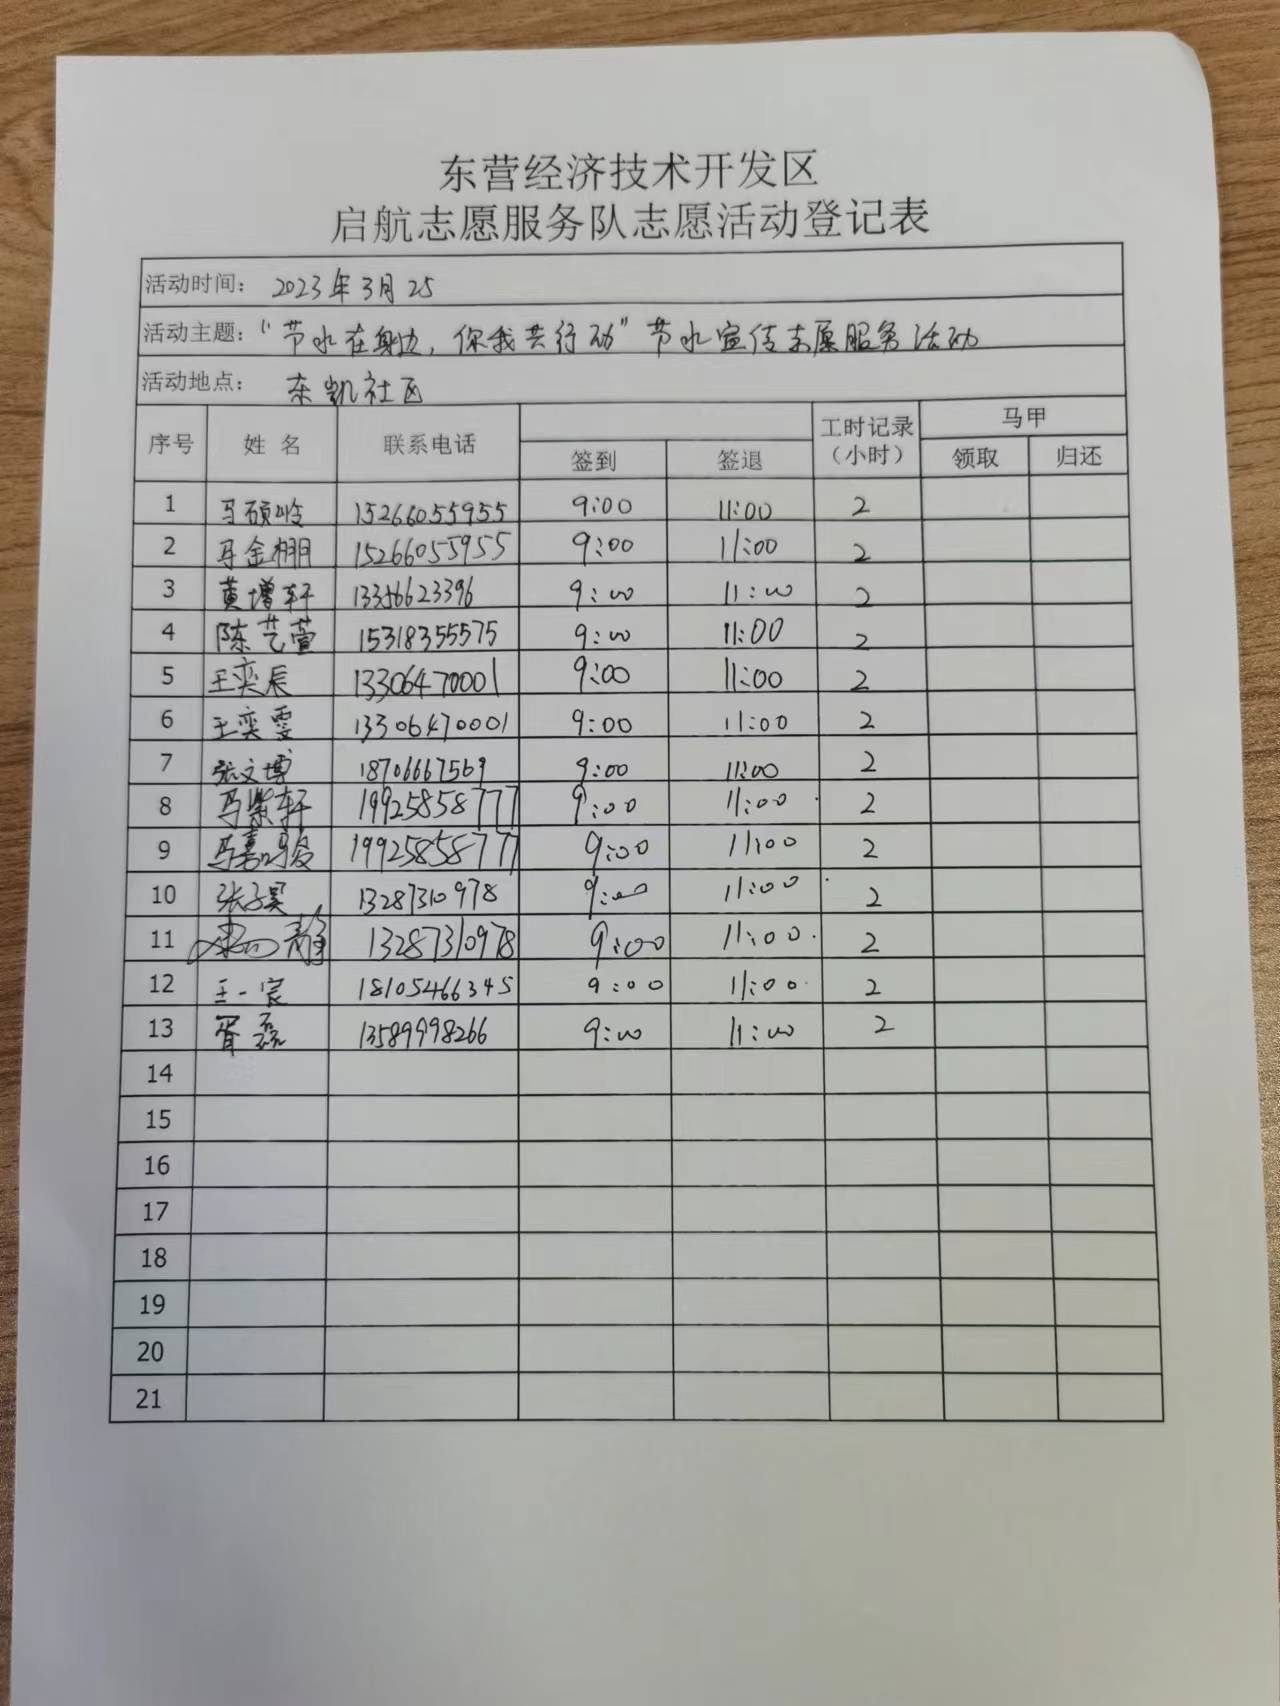 东营经济技术开发区
启航志愿服务队志愿活动登记表
活动时间: 2023年3月25
活动主题:“节水在身边,你我共行动”节水宣传志愿服务活动
活动地点: 东凯社区
序号 姓 名 联系电话 工时记录(小时) 马甲
签到 签退 领取 归还
1 马硕 15266055955 9:00 11:00 2
2 马金栩 15266055955 9:00 11:00 2
3 黄增轩 13356623396 9:00 11:00 2
4 陈艺萱 15318355575 9:00 11:00 2
5 王奕辰 13306470001 9:00 11:00 2
6 王奕雯 13306470001 9:00 11:00 2
7 张文博 18706667569 9:00 11:00 2
8 马紫轩 19925858777 9:00 11:00 2
9 马嘉骏 19925858777 9:00 11:00 2
10 张子昊 13287310978 9:00 11:00 2
11 静 13287310978 9:00 11:00 2
12 王一宸 18105466345 9:00 11:00 2
13 胥磊 13589998266 9:00 11:00 2
14
15
16
17
18
19
20
21